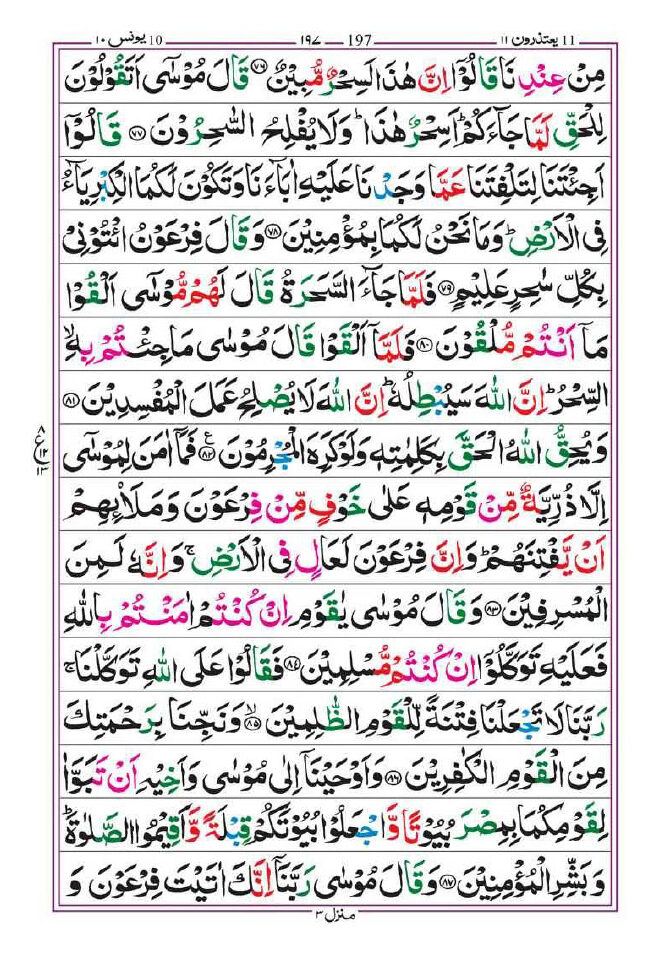 10 يونس ۱۰ 197 — ۱۹۷ 11 يعتذرون ۱۱
مِنْ عِنْدِ نَا قَالُوْۤا اِنَّ هٰذَا لَسِحْرٌ مُّبِيْنٌ ﴿۷۶﴾ قَالَ مُوْسٰۤى اَتَقُوْلُوْنَ
لِلْحَقِّ لَمَّا جَآءَكُمْ ؕ اَسِحْرٌ هٰذَا ؕ وَلَا يُفْلِحُ السّٰحِرُوْنَ ﴿۷۷﴾ قَالُوْۤا
اَجِئْتَنَا لِتَلْفِتَنَا عَمَّا وَجَدْنَا عَلَيْهِ اٰبَآءَنَا وَتَكُوْنَ لَكُمَا الْكِبْرِيَآءُ
فِى الْاَرْضِ ؕ وَمَا نَحْنُ لَكُمَا بِمُؤْمِنِيْنَ ﴿۷۸﴾ وَقَالَ فِرْعَوْنُ ائْتُوْنِىْ
بِكُلِّ سٰحِرٍ عَلِيْمٍ ﴿۷۹﴾ فَلَمَّا جَآءَ السَّحَرَةُ قَالَ لَهُمْ مُّوْسٰۤى اَلْقُوْا
مَاۤ اَنْتُمْ مُّلْقُوْنَ ﴿۸۰﴾ فَلَمَّاۤ اَلْقَوْا قَالَ مُوْسٰى مَا جِئْتُمْ بِهِ ۙ
السِّحْرُ ؕ اِنَّ اللّٰهَ سَيُبْطِلُهٗ ؕ اِنَّ اللّٰهَ لَا يُصْلِحُ عَمَلَ الْمُفْسِدِيْنَ ﴿۸۱﴾
وَيُحِقُّ اللّٰهُ الْحَقَّ بِكَلِمٰتِهٖ وَلَوْ كَرِهَ الْمُجْرِمُوْنَ ﴿۸۲﴾ ع فَمَاۤ اٰمَنَ لِمُوْسٰۤى
۸ ع ۱۲ ۱۳
اِلَّا ذُرِّيَّةٌ مِّنْ قَوْمِهٖ عَلٰى خَوْفٍ مِّنْ فِرْعَوْنَ وَمَلَا۟ئِهِمْ
اَنْ يَّفْتِنَهُمْ ؕ وَاِنَّ فِرْعَوْنَ لَعَالٍ فِى الْاَرْضِ ۚ وَاِنَّهٗ لَمِنَ
الْمُسْرِفِيْنَ ﴿۸۳﴾ وَقَالَ مُوْسٰى يٰقَوْمِ اِنْ كُنْتُمْ اٰمَنْتُمْ بِاللّٰهِ
فَعَلَيْهِ تَوَكَّلُوْۤا اِنْ كُنْتُمْ مُّسْلِمِيْنَ ﴿۸۴﴾ فَقَالُوْا عَلَى اللّٰهِ تَوَكَّلْنَا ۚ
رَبَّنَا لَا تَجْعَلْنَا فِتْنَةً لِّلْقَوْمِ الظّٰلِمِيْنَ ﴿۸۵﴾ ۙ وَنَجِّنَا بِرَحْمَتِكَ
مِنَ الْقَوْمِ الْكٰفِرِيْنَ ﴿۸۶﴾ وَاَوْحَيْنَاۤ اِلٰى مُوْسٰى وَاَخِيْهِ اَنْ تَبَوَّاٰ
لِقَوْمِكُمَا بِمِصْرَ بُيُوْتًا وَّاجْعَلُوْا بُيُوْتَكُمْ قِبْلَةً وَّاَقِيْمُوا الصَّلٰوةَ ؕ
وَبَشِّرِ الْمُؤْمِنِيْنَ ﴿۸۷﴾ وَقَالَ مُوْسٰى رَبَّنَاۤ اِنَّكَ اٰتَيْتَ فِرْعَوْنَ وَ
منزل ۳